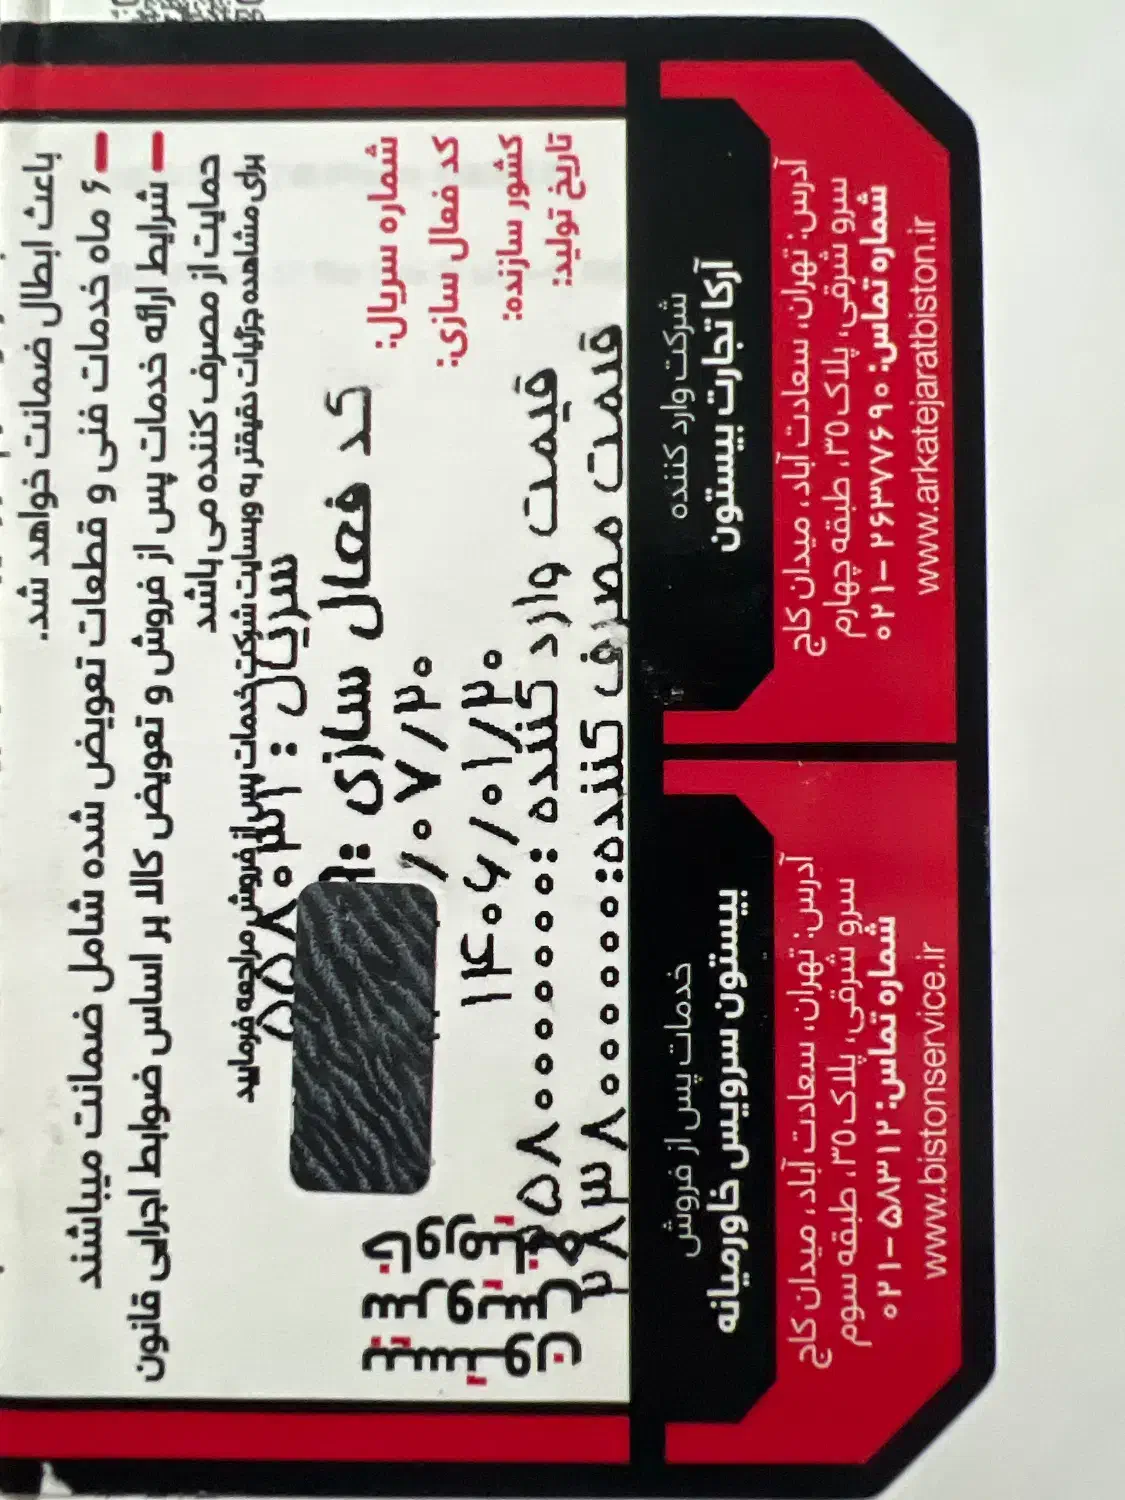 باعث ابطال ضمانت خواهد شد.
۶ ماه خدمات فنی و قطعات تعویض شده شامل ضمانت میباشند
شرایط ارائه خدمات پس از فروش و تعویض کالا بر اساس ضوابط اجرایی قانون
حمایت از مصرف کننده می باشد
برای مشاهده جزئیات دقیقتر به وبسایت شرکت خدمات پس از فروش مراجعه فرمایید
شماره سریال:
کد فعال سازی:
کشور سازنده:
تاریخ تولید:
کد فعال سازی :
۱۴۰۶/۰۱/۲۰
قیمت وارد کننده :
قیمت مصرف کننده:
بیستون
سرویس
شرکت وارد کننده
آرکا تجارت بیستون
آدرس: تهران، سعادت آباد، میدان کاج
سرو شرقی، پلاک ۳۵، طبقه چهارم
شماره تماس: ۲۶۳۷۷۶۹۰ - ۰۲۱
www.arkatejaratbiston.ir
خدمات پس از فروش
بیستون سرویس خاورمیانه
آدرس: تهران، سعادت آباد، میدان کاج
سرو شرقی، پلاک ۳۵، طبقه سوم
شماره تماس: ۵۸۳۱۲ - ۰۲۱
www.bistonservice.ir